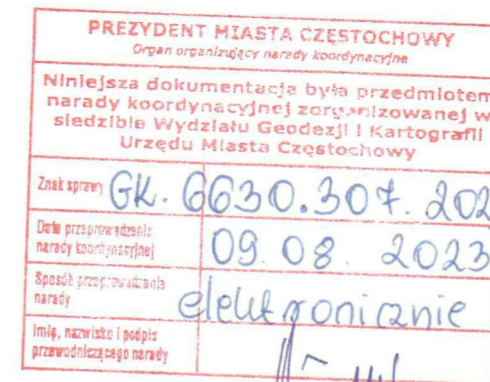 PREZYDENT MIASTA CZĘSTOCHOWY
Organ organizujący narady koordynacyjne
Niniejsza dokumentacja była przedmiotem
narady koordynacyjnej zorganizowanej w
siedzibie Wydziału Geodezji i Kartografii
Urzędu Miasta Częstochowy
Znak sprawy GK. 6630.307.202
Data przeprowadzenia
narady koordynacyjnej 09.08.2023
Sposób przeprowadzenia
narady elektronicznie
Imię, nazwisko i podpis
przewodniczącego narady